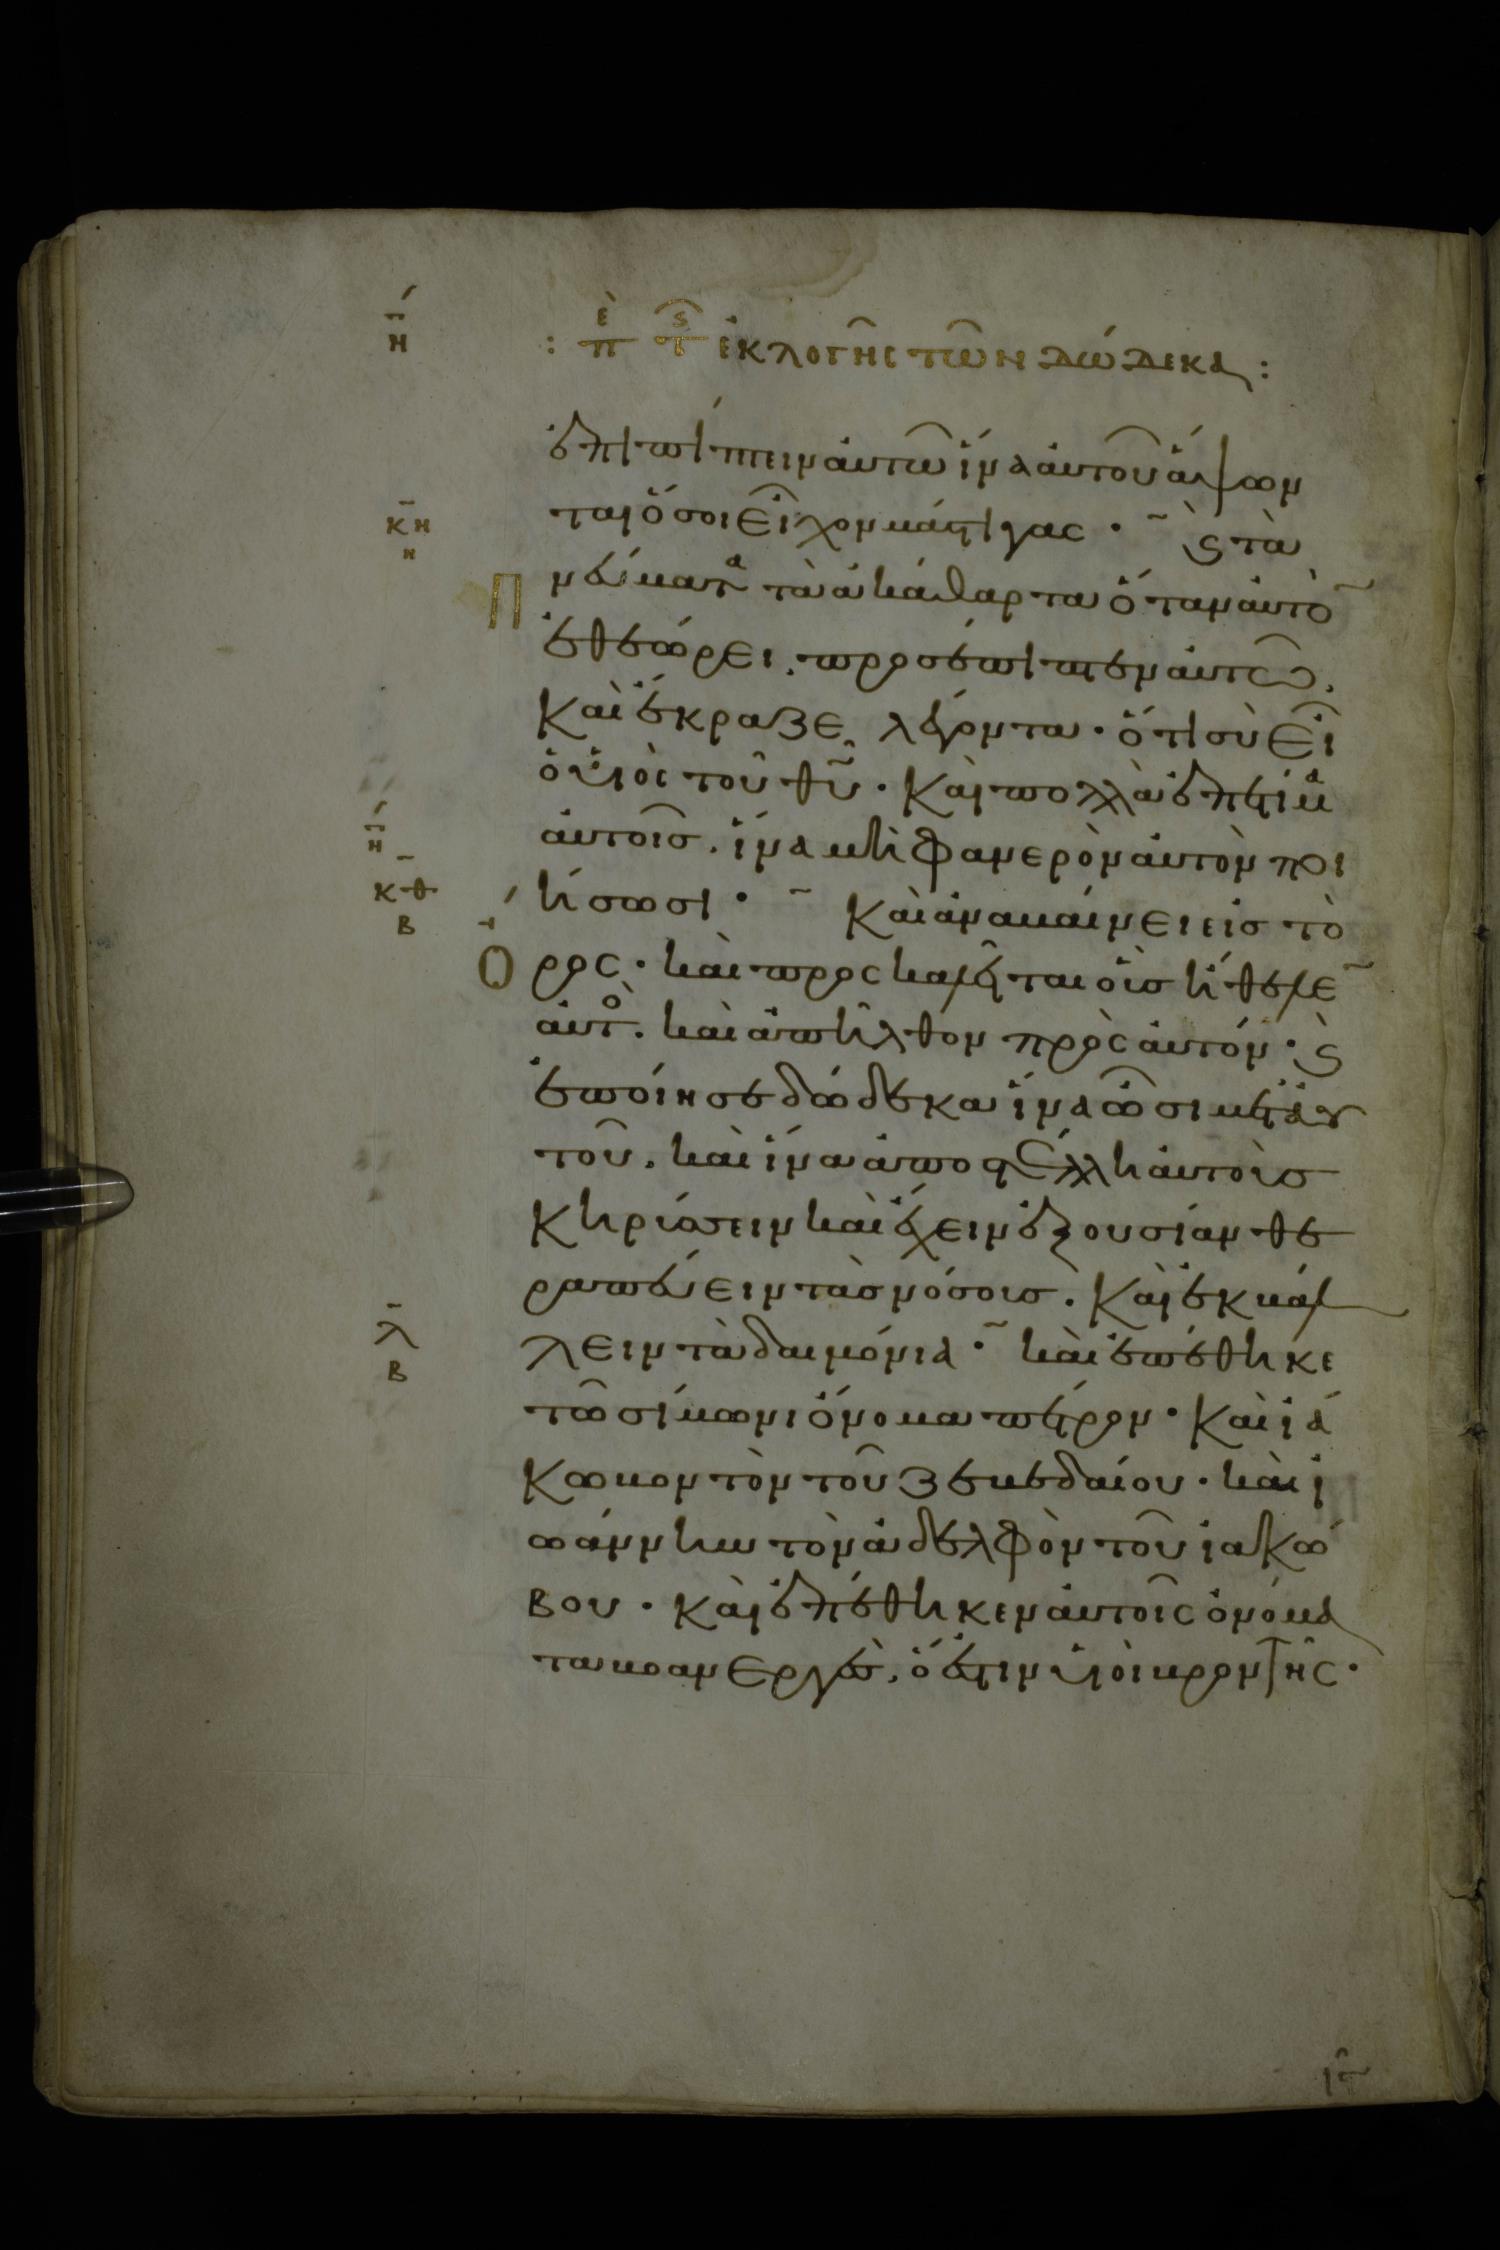 η
: πε τς ἐκλογῆς τῶν δώδεκα :
ἐπιπίπτειν αὐτῶ ἵνα αὐτοῦ ἅψων
ται ὅσοι εἶχον μάστιγας · ϗ τὰ
κη
η
Πνεύματα τὰ ἀκάθαρτα ὅταν αὐτὸ
ἐθεώρει, προσέπιπτεν αὐτῶ,
καὶ ἔκραζε λέγοντα · ὅτι σὺ εἶ
ὁ υἱὸς τοῦ θυ · καὶ πολλὰ ἐπετίμα
αὐτοῖς, ἵνα μὴ φανερὸν αὐτὸν ποι
η
κθ
β
ήσωσι · καὶ ἀναβαίνει εἰς τὸ
Ορος · καὶ προσκαλεῖται οὓς ἤθελε
αὐτὸ, καὶ ἀπῆλθον πρὸς αὐτόν · ϗ
ἐποίησε δώδεκα ἵνα ὦσι μετ' αυ
τοῦ, καὶ ἵνα ἀποστέλλη αὐτοὺς
κηρύσσειν καὶ ἔχειν ἐξουσίαν θε
ραπεύειν τὰς νόσους, καὶ ἐκβάλ
λειν τὰ δαιμόνια · καὶ ἐπέθηκε
λ
β
τῶ σίμωνι ὄνομα πέτρον · καὶ ἰά
κωβον τὸν τοῦ ζεβεδαίου · καὶ ἰ
ωάννην τὸν ἀδελφὸν τοῦ ἰακώ
βου · καὶ ἐπέθηκεν αὐτοῖς ὀνόμα
τα βοανεργὲς, ὅ ἐστιν υἱοὶ βροντῆς ·